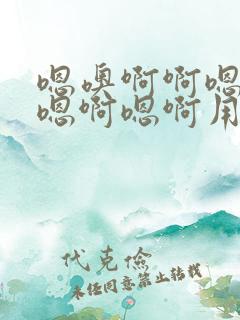 嗯奥啊啊嗯
嗯啊嗯啊用
代克俭
未经同意禁止转载